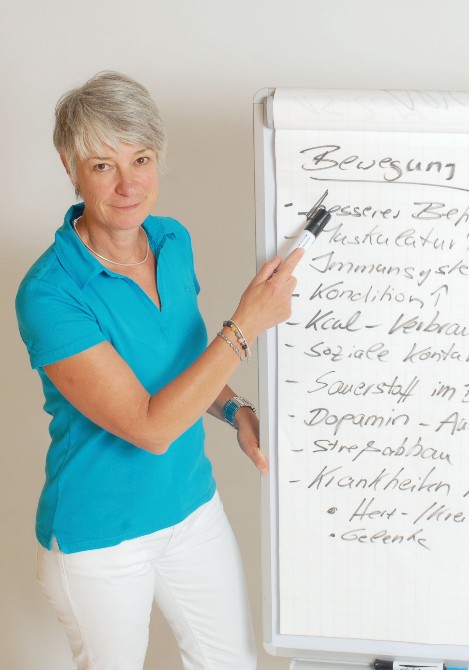 Bewegung
- besseres Bef
- Muskulatur
- Immunsyste
- Kondition ↑
- Kcal - Verbrau
- soziale Konta
- Sauerstoff im
- Dopamin - Au
- Streßabbau
- Krankheiten
• Herz-/Krei
• Gelenke